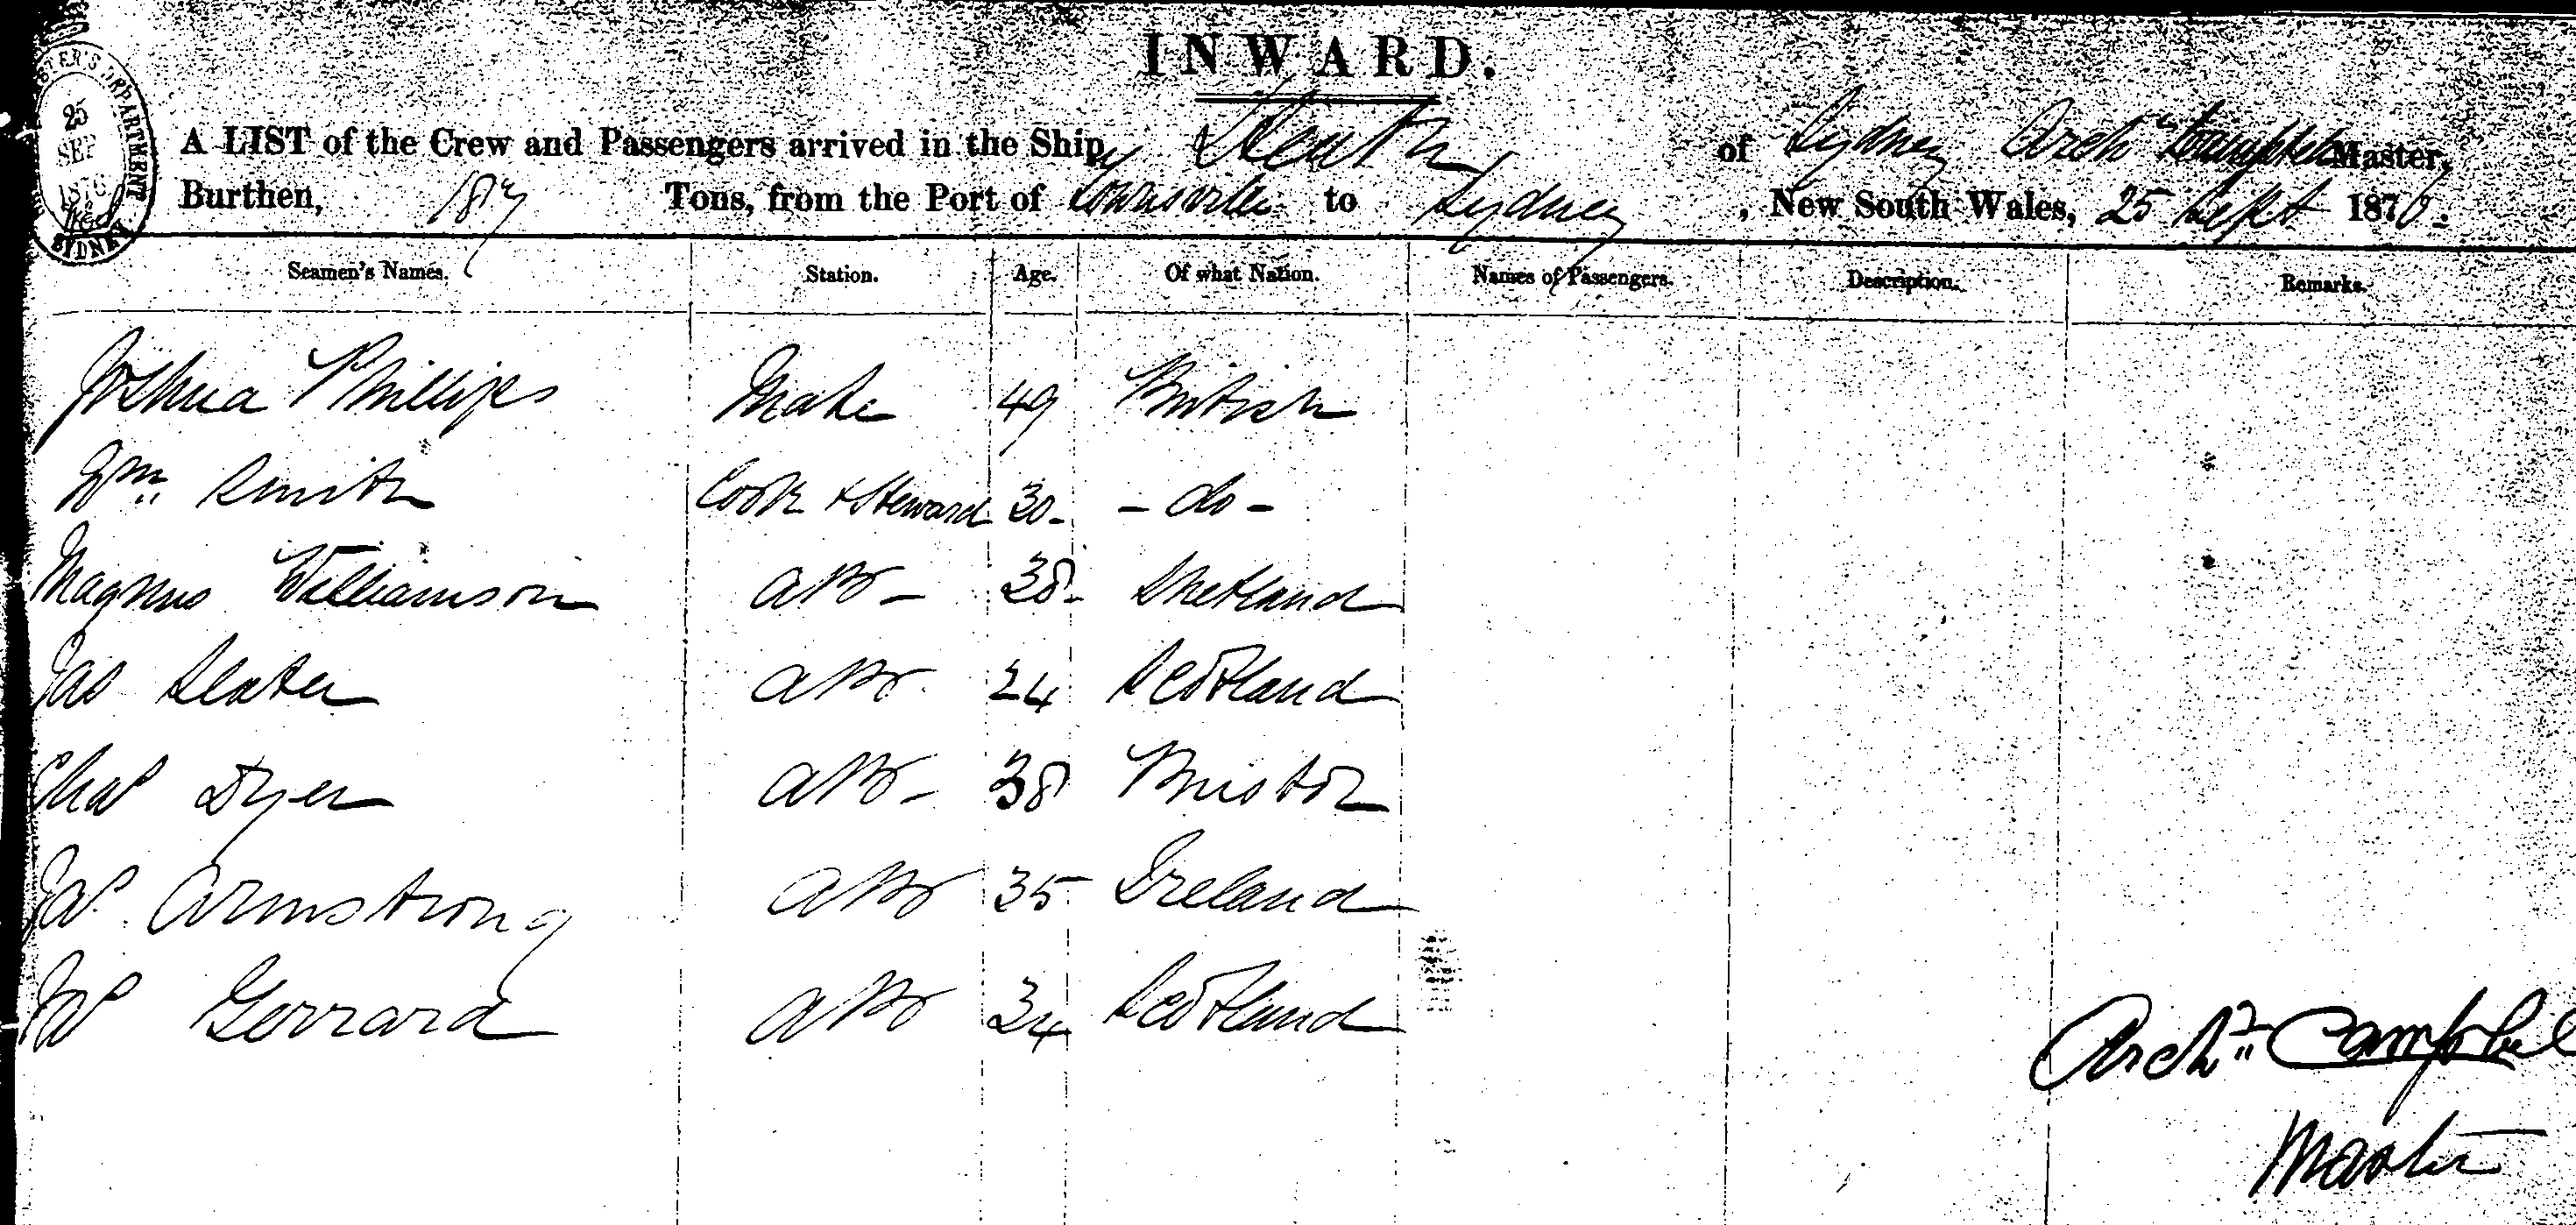 INWARD.
A LIST of the Crew and Passengers arrived in the Ship Heath of Sydney Archd Campbell Master,
Burthen, 187 Tons, from the Port of Townsville to Sydney, New South Wales, 25 Sept 1876.
25
SEP
1876
SYDNEY
Seamen's Names. Station. Age. Of what Nation. Names of Passengers. Description. Remarks.
Joshua Phillips Mate 49 British
Wm. Smith Cook & Steward 30 - - do -
Magnus Williamson AB - 38 - Shetland
Jas Slater AB 24 Scotland
Chas Dyer AB - 38 Bristol
Jas. Armstrong AB 35 Ireland
Jas Gerrard AB 34 Scotland
Archd. Campbel
Master